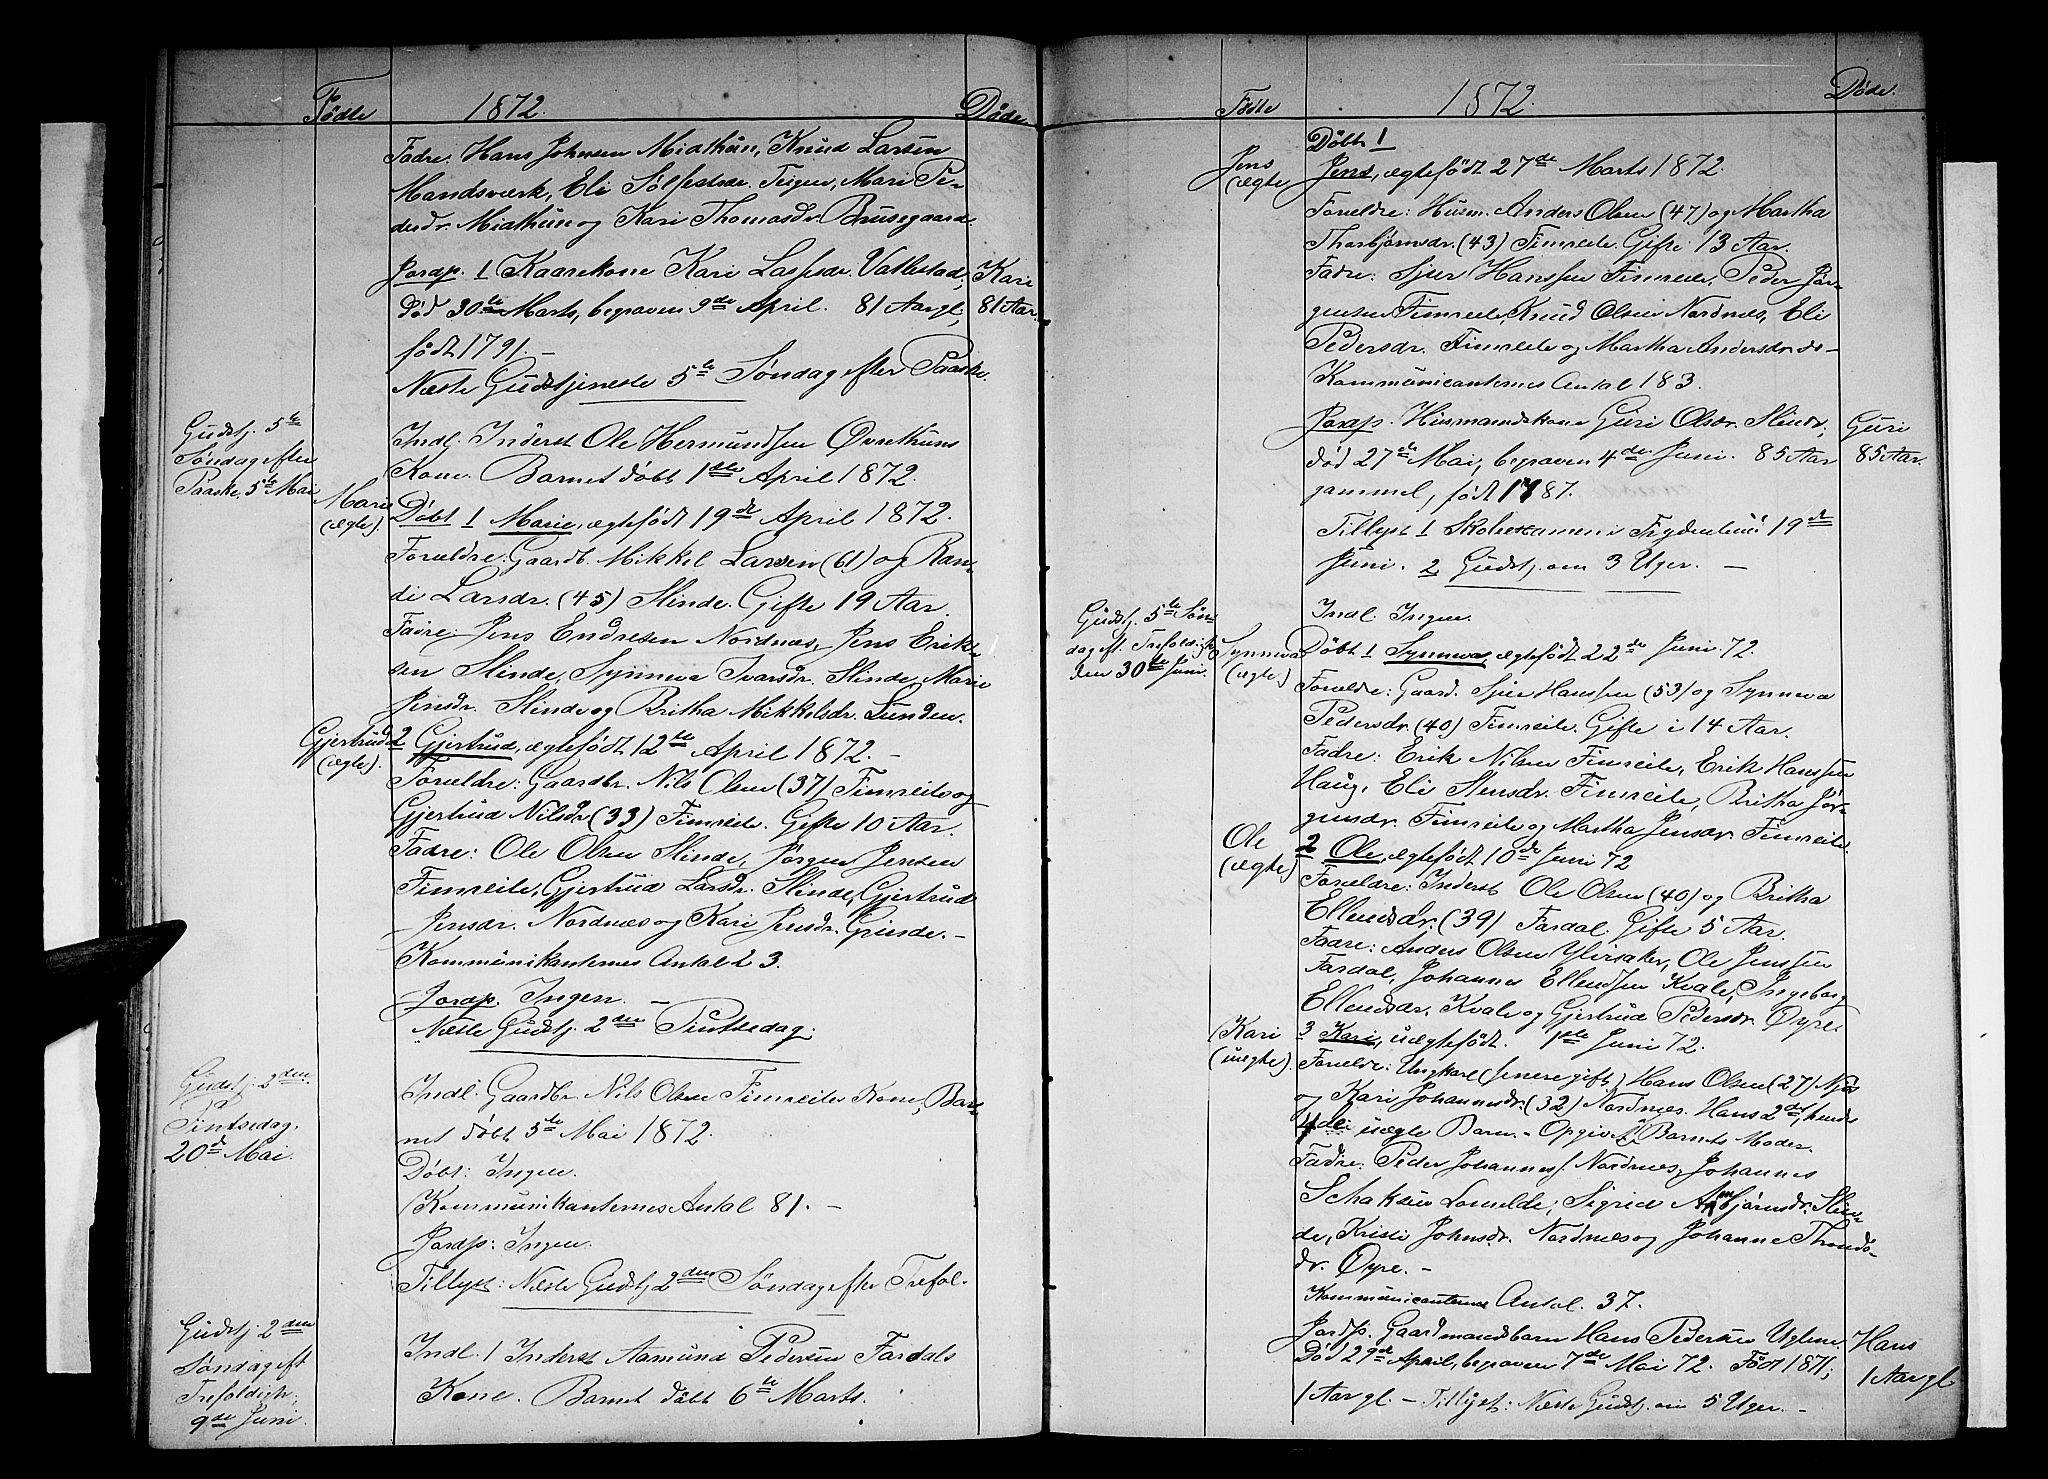 Födte 1872. Döde
Fadre: Hans Johnsen Midthun, Knud Larsen
Handsværk, Eli Sølfestsdr. Teigen, Mari Pe-
dersdr. Midthun og Kari Thomasdr. Brusegaard.
Jordp. 1 Kaarekone Kari Lassesdr. Vallestad,
død 30te Marts, begraven 9de April. 81 Aar gl,
født 1791.-
Kari
81 Aar.
Næste Gudstjeneste 5te Søndag efter Paaske.
Gudstj. 5te
Søndag efter
Paaske, 5te Mai
Indl: Inderst Ole Hermundsen Øvrethuns
Kone. Barnet döbt 1ste April 1872.
Marie
(ægte).
Döbt 1 Marie, ægtefödt 19de April 1872.
Forældre: Gaardb. Mikkel Larsen (61) og Ran-
di Larsdr. (45) Slinde. Gifte 19 Aar.
Fadre: Jens Endresen Nordnæs, Jens Erik-
sen Slinde, Synneva Ivarsdr. Slinde, Marie
Jensdr. Slinde og Britha Mikkelsdr. Lunden.
Gjertrud
(ægte).
2 Gjertrud, ægtefödt 12te April 1872.-
Forældre: Gaardbr. Nils Olsen (37) Fimreite og
Gjertrud Nilsdr (33) Fimreite. Gifte 10 Aar.
Fadre: Ole Olsen Slinde, Jørgen Jensen
Fimreite, Gjertrud Larsdr. Slinde, Gjertrud
Jensdr. Nordnæs og Kari Jensdr. Grinde.-
Kommünikanternes Antal 23.
Jordp. Ingen.-
Næste Gudstj. 2den Pintsedag.
Gudstj. 2den
Pintsedag,
20de Mai.
Indl: Gaardbr. Nils Olsen Fimreites Kone, Bar-
net döbt 5te Mai 1872.
Döbt: Ingen.
Kommünikanternes Antal 81.-
Jordp: Ingen.
Tillyst: Næste Gudstj. 2den Søndag efter Trefol.
Gudstj. 2den
Søndag eft
Trefoldigh,
9de Juni.
Indl. 1 Inderst Aamund Pedersen Fardals
Kone. Barnet döbt 6te Marts.
Födte 1872. Döde.
Jens
(ægte
Döbt 1
Jens, ægtefödt 27de Marts 1872.
Forældre: Husm. Anders Olsen (47) og Martha
Thorbjørnsdr. (43) Fimreite. Gifte 13 Aar.
Fadre: Sjur Hanssen Fimreite, Peder Jør-
gensen Fimreite, Knud Olsen Nordnæs, Eli
Pedersdr. Fimreite og Martha Andersdr. ds-
Kommünicanternes Antal 183.
Jordp. Husmandskone Guri Olsdr. Slinde,
død 27de Mai, begraven 4de Juni. 85 Aar
gammel, født 1787.
Guri
85 Aar.
Tillyst 1 Skoleexamen i 19de
Juni. 2 Gudstj. om 3 Uger.-
Gudstj. 5te Søn-
dag eft. Trefoldigh
den 30te Juni.
Indl: Ingen.
Synneva
(ægte)
Döbt 1 Synneva, ægtefödt 22de Juni 72.
Forældre: Gaard. Sjur Hanssen (53) og Synneva
Pedersdr. (40) Fimreite. Gifte i 14 Aar.
Fadre: Erik Nilsen Fimreite, Erik Hanssen
Haug, Eli Stensdr. Fimreite, Britha Jør-
gensdr. Fimreite og Martha Jensdr. Fimreite.
Ole
(ægte)
2 Ole, ægtefödt 10de Juni 72
Forældre: Inderst Ole Olsen (40) og Britha
Ellendsdr. (39) Fardal. Gifte 5 Aar.
Fadre: Anders Olsen Ylvisaker, Ole Jenssen
Fardal, Johannes Ellendsen Kvale, Ingeborg
Ellendsdr. Kvale og Gjertrud Pedersdr. Øyre.
Kari
(uægte)
3 Kari, uægtefödt. 1ste Juni 72.
Forældre: Ungkarl (senere gift) Hans Olsen (27) Njøs
og Kari Johannesdr. (32) Nordnæs. Hans 2det, hendes
4de uægte Barn.- Opgivet Barnets Moder.
Fadre: Peder Johanness. Nordnæs, Johannes
Schaksen Lomelde, Sigrid Arnbjørnsdr. Slin-
de, Kristi Johnsdr. Nordnæs og Johanne Thronds-
dr. Øyre.-
Kommünicanternes Antal. 37.
Jordp. Gaardmandsbarn Hans Pedersen Uglum.
Død 29de April, begraven 7de Mai 72. Født 1871;
1 Aar gl.- Tillyst: Næste Gudstj. om 5 Uger.-
Hans
1 Aar gl